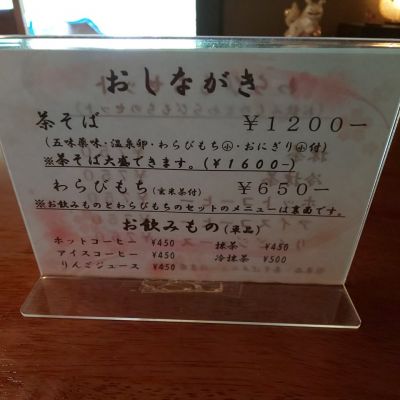 おしながき
茶そば ￥1200－
(五味薬味・温泉卵・わらびもち㊙・おにぎり㊙付)
※茶そば大盛できます。(￥1600－)
わらびもち(玄米茶付) ￥650－
※お飲みものとわらびもちのセットのメニューは裏面です。
お飲みもの(単品)
ホットコーヒー ￥450 抹茶 ￥450
アイスコーヒー ￥450 冷抹茶 ￥500
りんごジュース ￥450